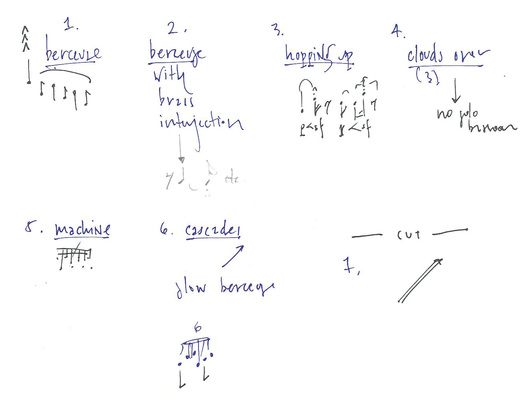 1.
berceuse
2.
berceuse
with
brass
interjection
etc.
3.
hopping up
p<sf p<sf
4.
clouds over
(3)
no
5. machine
6. cascades
slow berceuse
6
CUT
7.